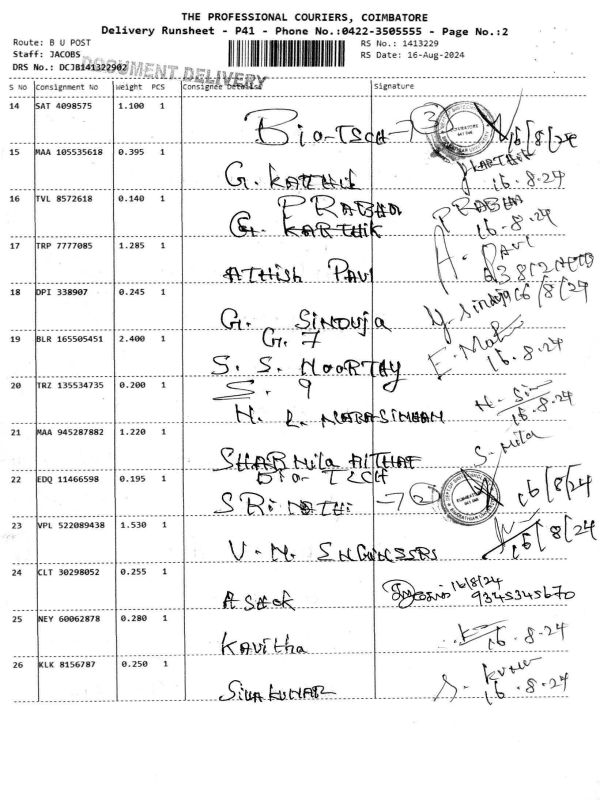 THE PROFESSIONAL COURIERS, COIMBATORE
Delivery Runsheet - P41 - Phone No.:0422-3505555 - Page No.:2
Route: B U POST
RS No.: 1413229
Staff: JACOBS
RS Date: 16-Aug-2024
DRS No.: DCJB141322902
DOCUMENT DELIVERY
S No Consignment No Weight PCS Consignee Details Signature
14 SAT 4098575 1.100 1
Bio-TECH 3 16/8/24
15 MAA 105535618 0.395 1
G. KARTHIK KARTHIK 16.8.24
16 TVL 8572618 0.140 1
PRABHA PRABHA
G. KARTHIK 16.8.24
17 TRP 7777085 1.285 1
ATHISH PAVI A. PAVI
18 DPI 338907 0.245 1
G. SINDUJA 16/8/24
19 BLR 165505451 2.400 1
G. 7
S. S. MOORTHY 16.8.24
20 TRZ 135534735 0.200 1
S. 9
N. L. NARASIMHAN 16.8.24
21 MAA 945287882 1.220 1
SHARMILA S. Mila
22 EDQ 11466598 0.195 1
BIO-TECH
SRI 2 16/8/24
23 VPL 522089438 1.530 1
V. N. ENGINEERS 16/8/24
24 CLT 30298052 0.255 1
ASHOK 16/8/24
9345345670
25 NEY 60062878 0.280 1
Kavitha 16.8.24
26 KLK 8156787 0.250 1
SIVAKUMAR S. 16.8.24